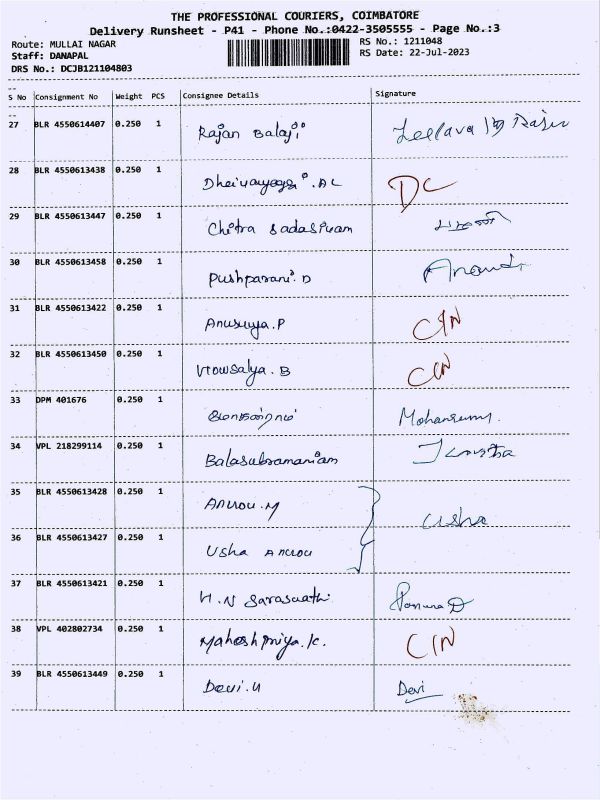 THE PROFESSIONAL COURIERS, COIMBATORE
Delivery Runsheet - P41 - Phone No.:0422-3505555 - Page No.:3
Route: MULLAI NAGAR RS No.: 1211048
Staff: DANAPAL RS Date: 22-Jul-2023
DRS No.: DCJB121104803
S No Consignment No Weight PCS Consignee Details Signature
27 BLR 4550614407 0.250 1 Rajan Balaji
28 BLR 4550613438 0.250 1 DC
29 BLR 4550613447 0.250 1 Chitra Sadasivam
30 BLR 4550613458 0.250 1 Pushparani. D
31 BLR 4550613422 0.250 1 Anusuya. P CIN
32 BLR 4550613450 0.250 1 Kowsalya. B CIN
33 DPM 401676 0.250 1
34 VPL 218299114 0.250 1 Balasubramaniam
35 BLR 4550613428 0.250 1
36 BLR 4550613427 0.250 1 Usha Usha
37 BLR 4550613421 0.250 1 H. N Saraswathi
38 VPL 402802734 0.250 1 Maheshpriya. K. CIN
39 BLR 4550613449 0.250 1 Devi. U Devi